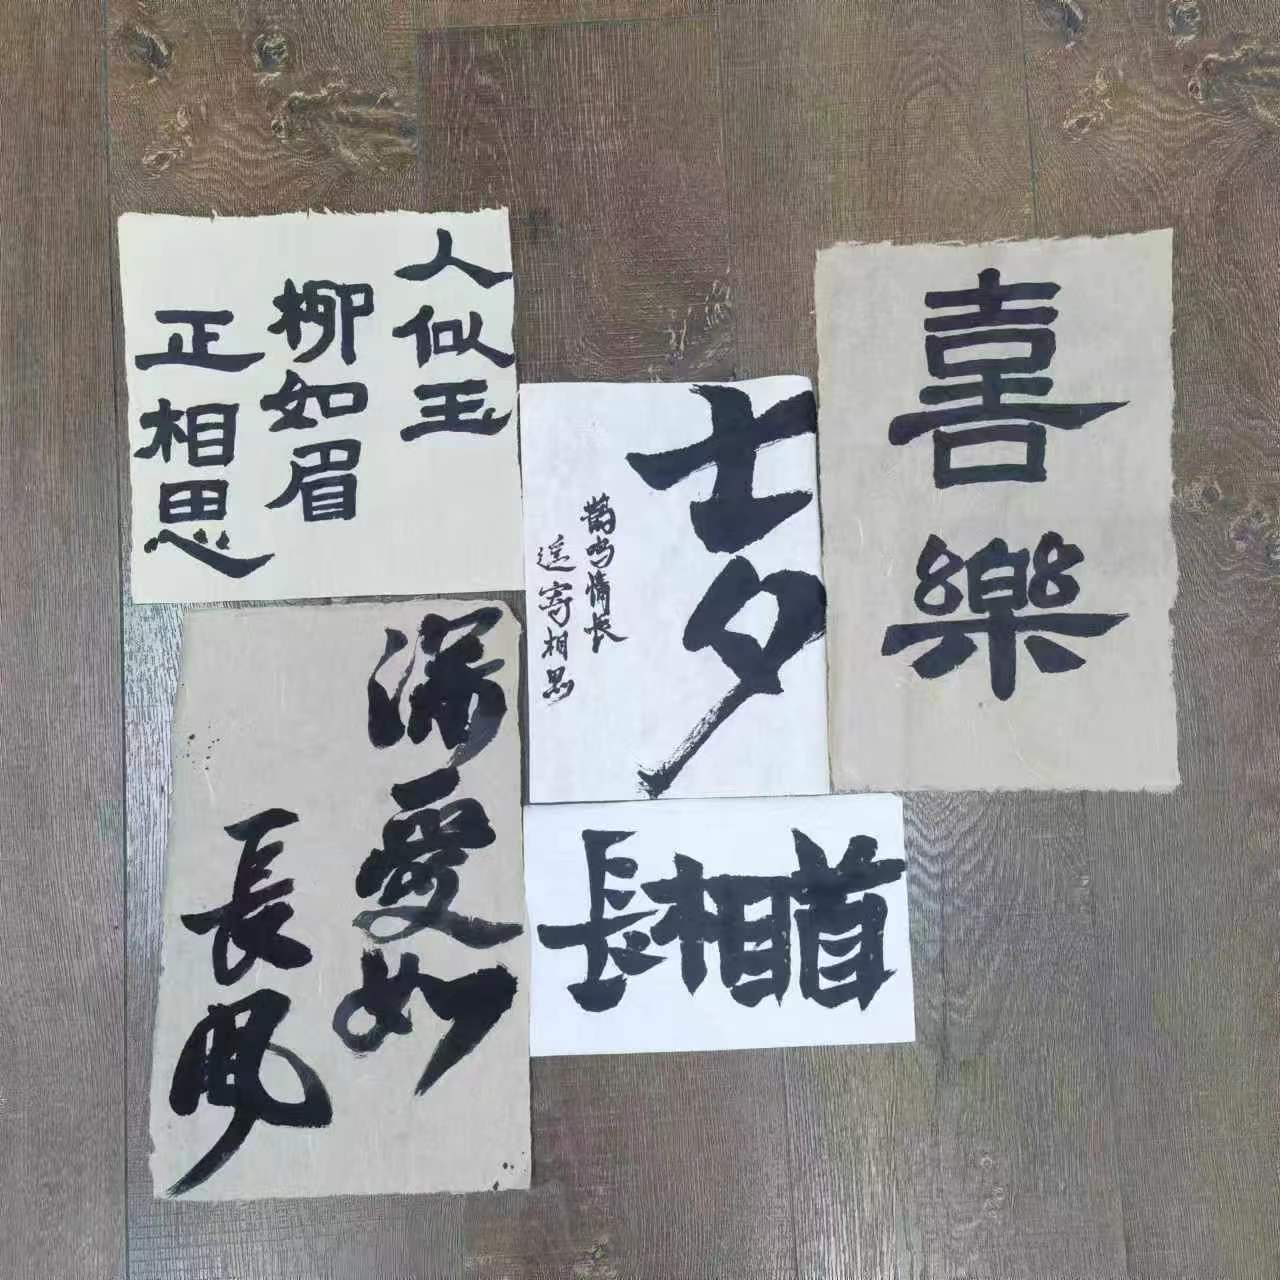 人似玉
柳如眉
正相思
七夕
鹊鸣情长
遥寄相思
喜樂
深愛如
長風
長相首